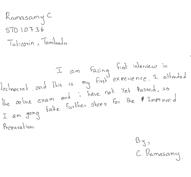 Ramasamy C
STD 10736
Tuticorin, Tamilnadu
I am facing first interview in
Technocrat and this is my first experience. I attended
the online exam and i have not yet passed, so
I am going take further steps for the improved
Preparation
By,
C Ramasamy